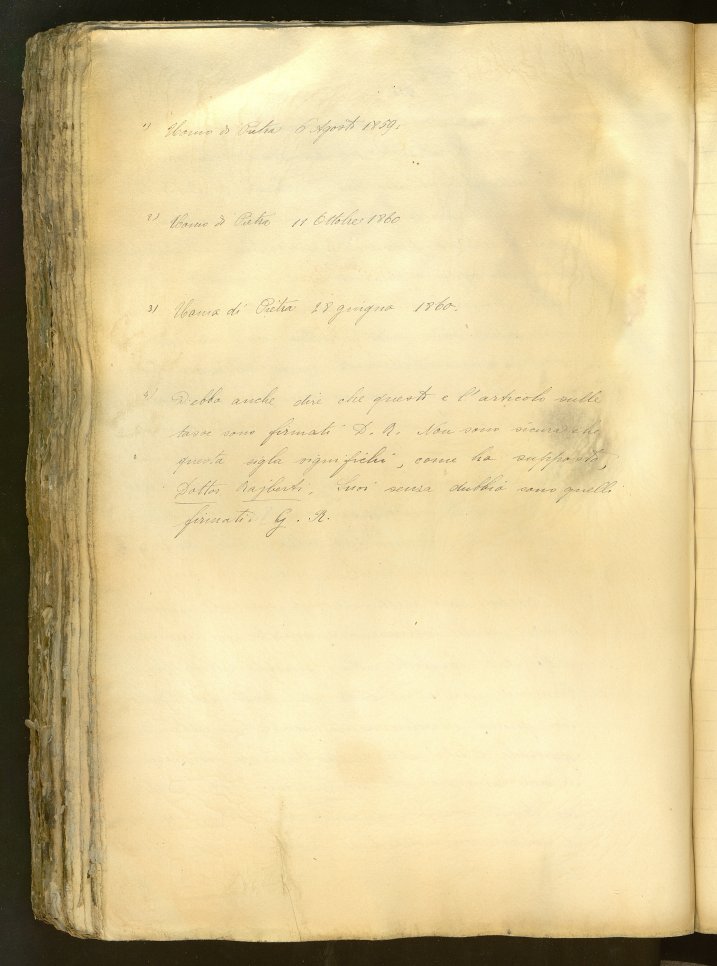 1) Uomo di Pietra 6 Agosto 1859.
2) Uomo di Pietra 11 Ottobre 1860
3) Uomo di Pietra 28 giugno 1860.
4) Debbo anche dire che questi e l'articolo sulle
tasse sono firmati D. R. Non sono sicura che
questa sigla significhi, come ho supposto,
Dottor Rajberti. Suoi senza dubbio sono quelli
firmati: G. R.